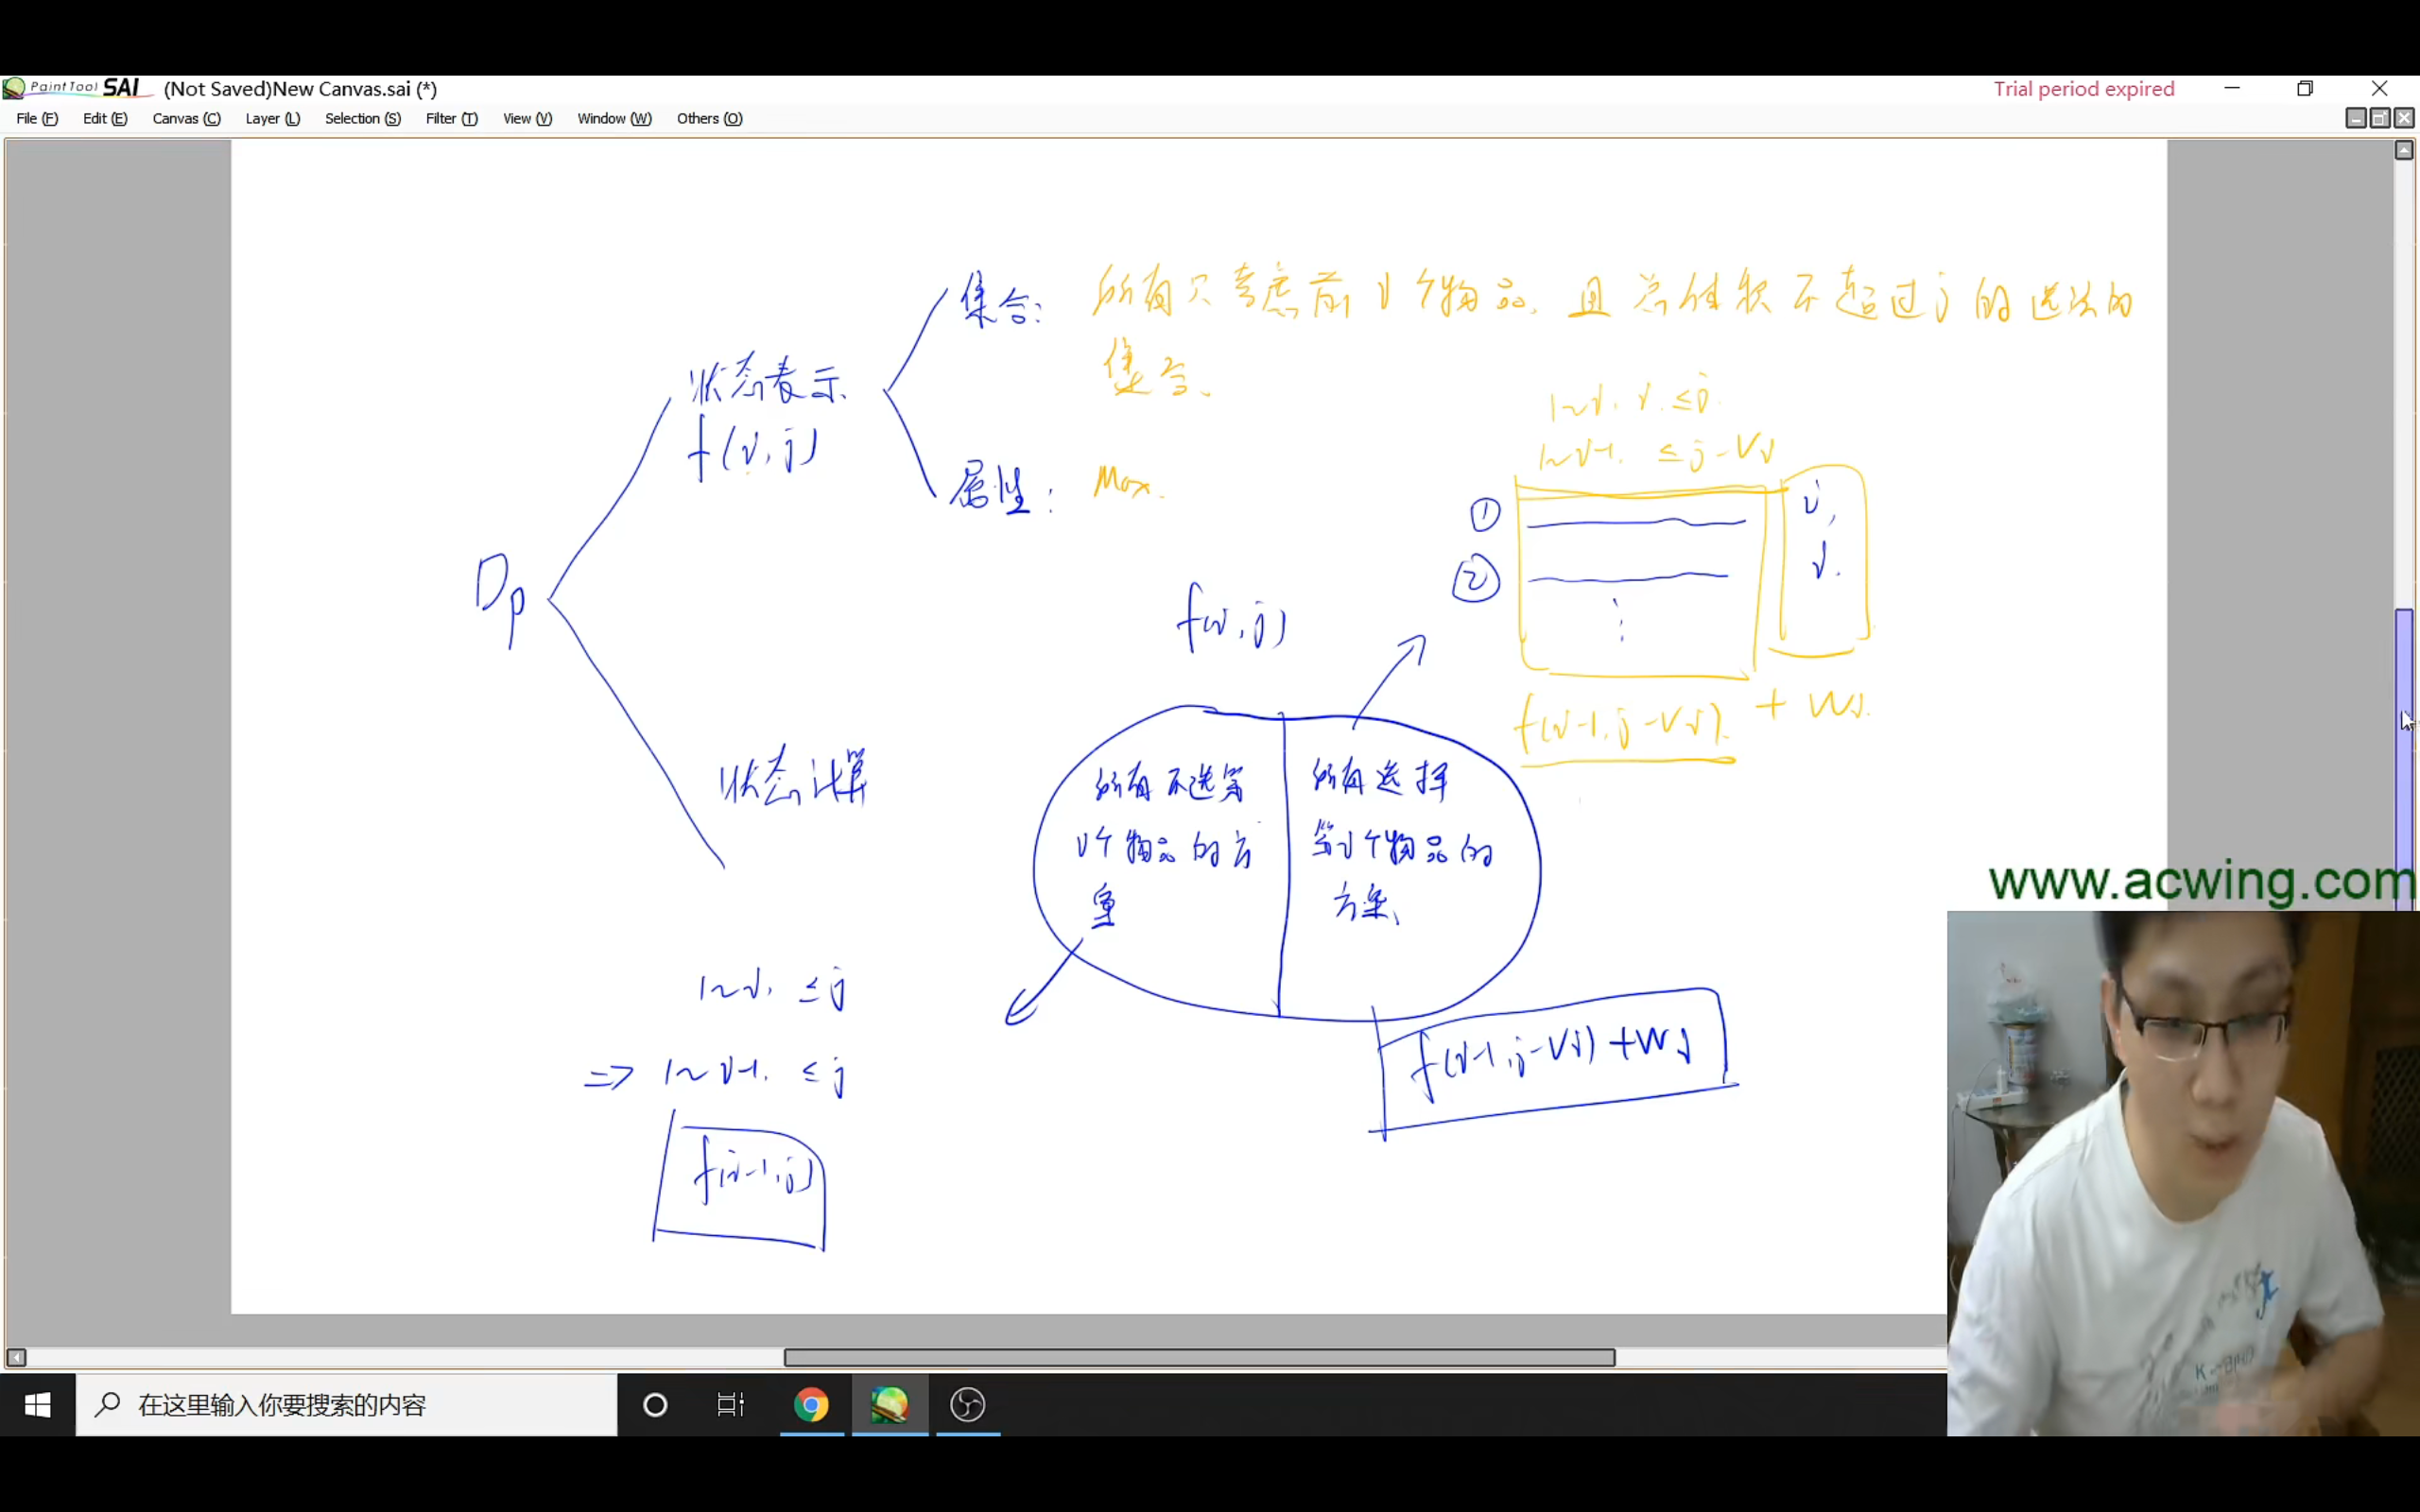 PaintTool SAI (Not Saved)New Canvas.sai (*)
Trial period expired
File (F) Edit (E) Canvas (C) Layer (L) Selection (S) Filter (T) View (V) Window (W) Others (O)
集合: 所有只考虑前i个物品, 且总体积不超过j的选法的
集合、
状态表示
f(i,j)
属性: Max.
1~i, i. ≤j.
1~i-1. ≤j-Vi
① i,
② i.
⋮
f(i-1,j-Vi). + Wi.
Dp
f(i,j)
状态计算
所有不选第
i个物品的方
案
所有选择
第i个物品的
方案、
1~i, ≤j
⇒ 1~i-1. ≤j
f(i-1,j)
f(i-1,j-Vi)+Wi
www.acwing.com
在这里输入你要搜索的内容